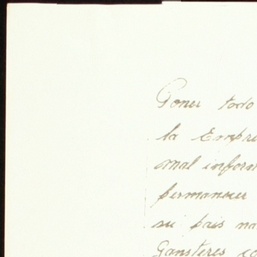 Poner todo
la Empre
mal inform
permanecer
su pais na
Gansteres co